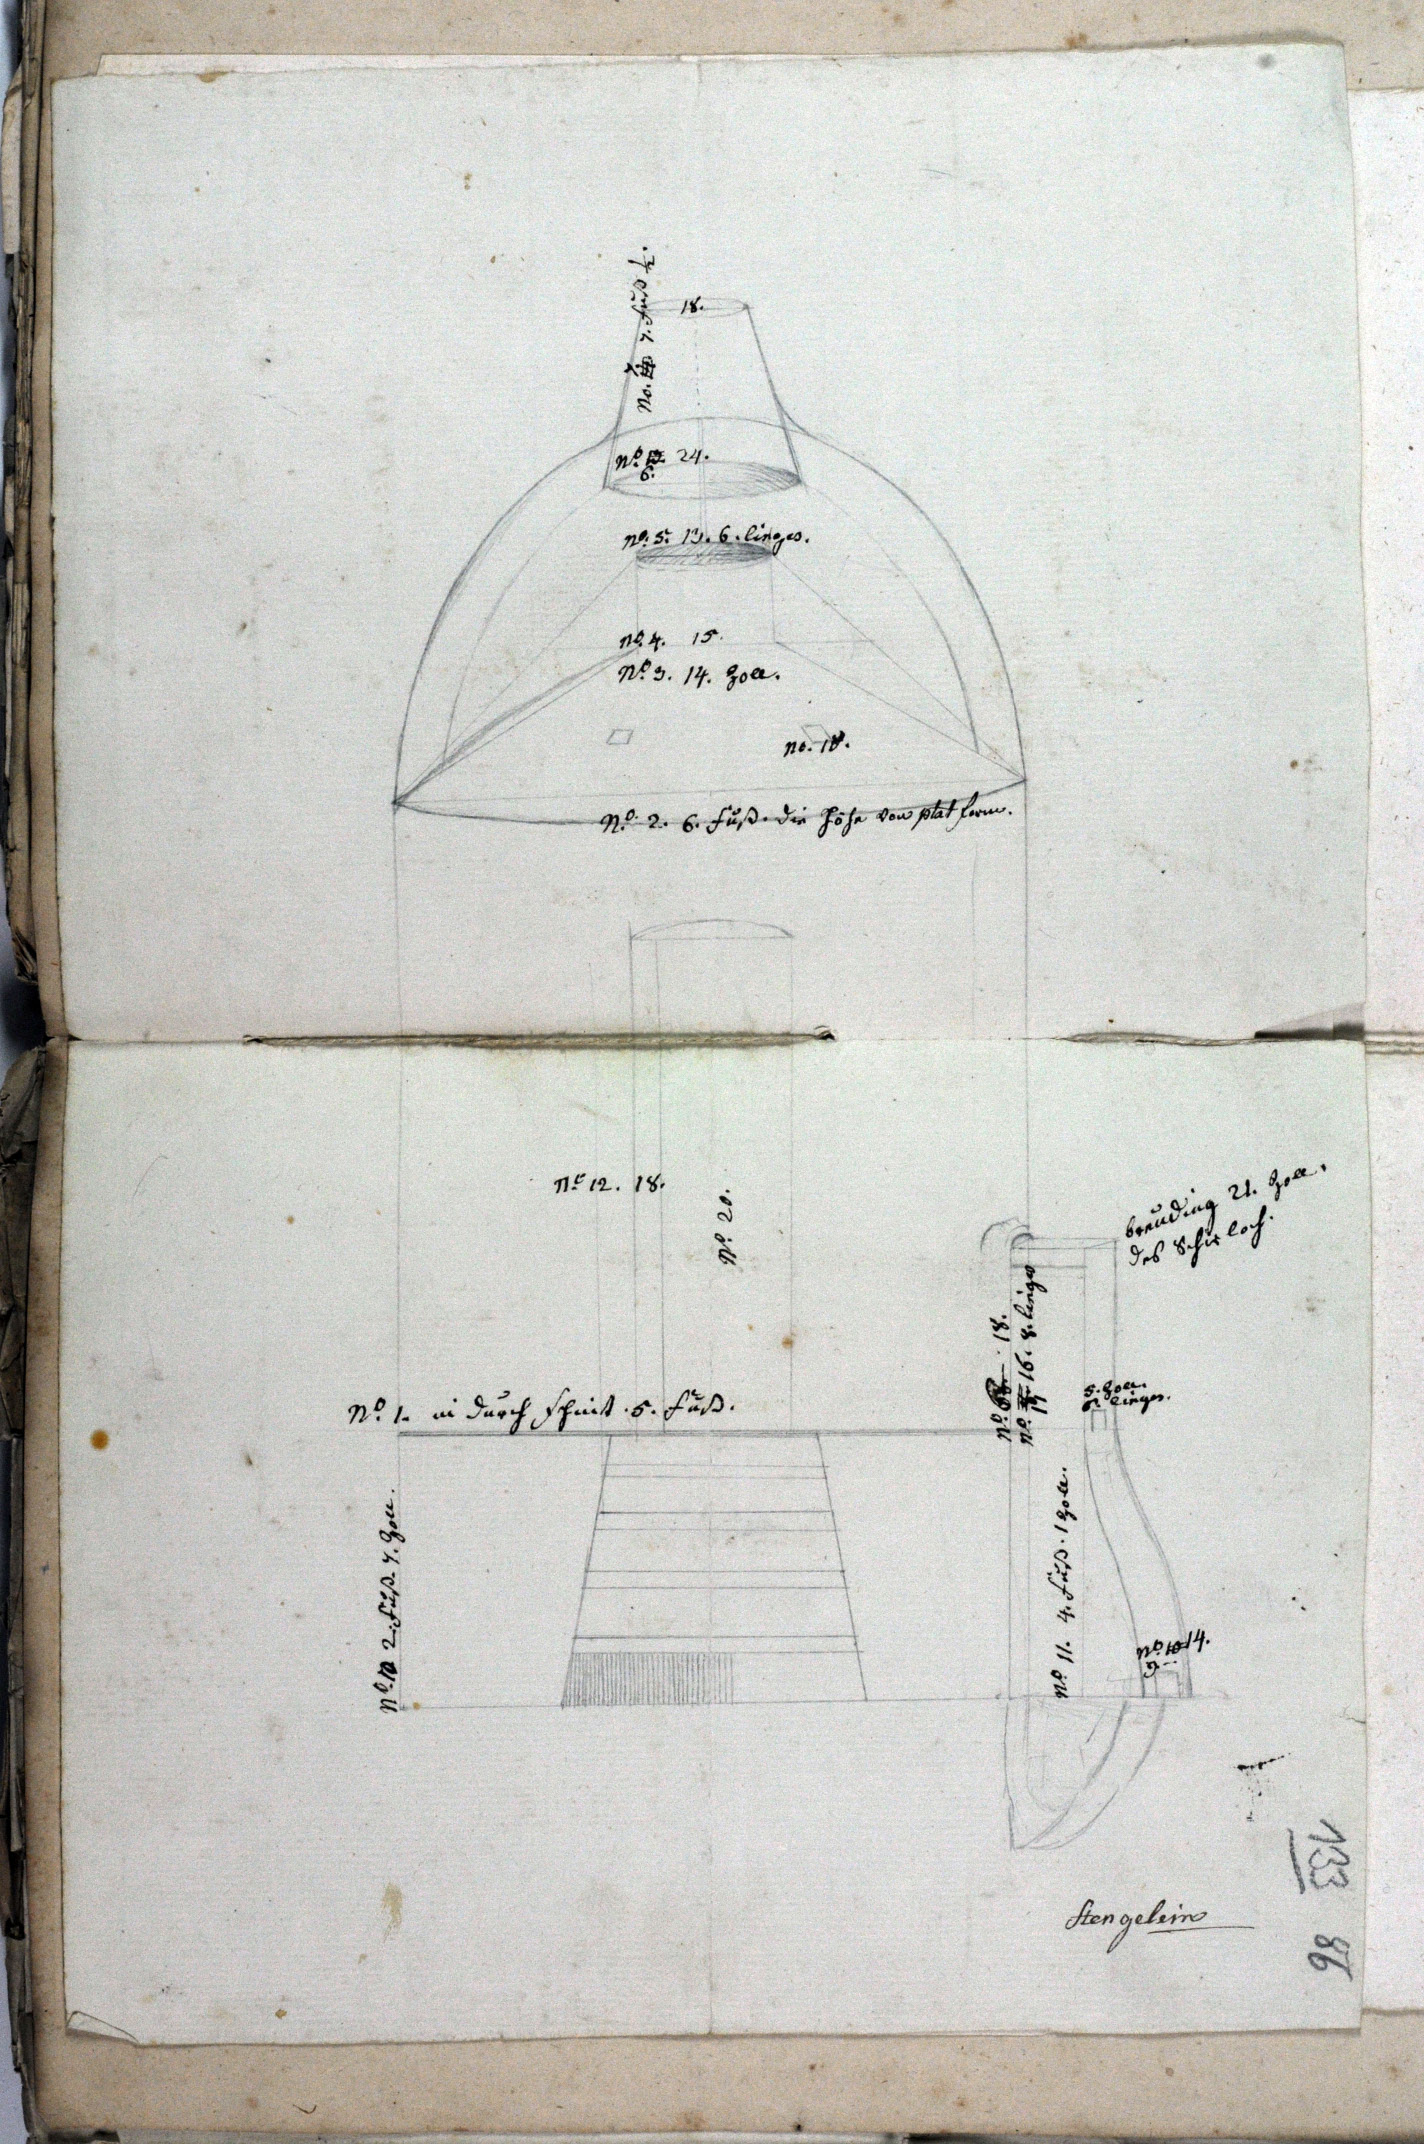 No. 7. 7. Fuß ½.
18.
No. 6. 24.
No. 5. 13. 6. linges.
No. 4. 15.
No. 3. 14. Zoll.
no. 18.
No. 2. 6. Fuß. die Höhe von plat form.
No 12. 18.
No. 20.
breuding 21. Zoll.
des Schir loch.
18.
16. 8. linges
5. Zoll.
6. linges.
No. 1. in durch schnit. 5. Fuß.
No. 10 2. Fuß. 7. Zoll.
No. 11. 4. Fuß. 1 Zoll.
14.
Stengelein
133
86